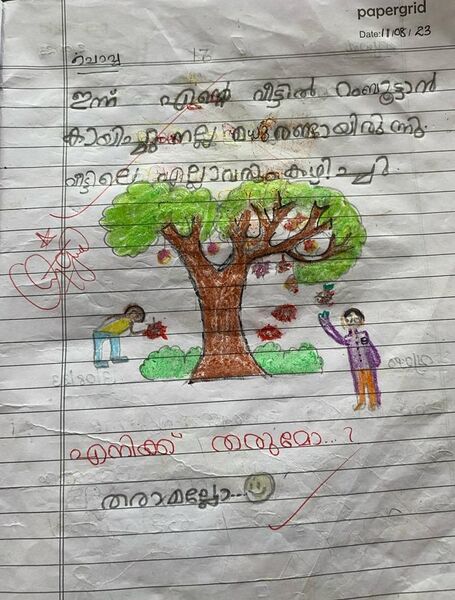 papergrid
Date: 11/08/23
ചൊവ്വ
ഇന്ന് എന്റെ വീട്ടിൽ റംബൂട്ടാൻ
കായിച്ചു നല്ല മധുരണ്ടായിരുന്നു.
വീട്ടിലെ എല്ലാവരും കഴിച്ചു.
എനിക്ക് തരുമോ...?
തരാമല്ലോ...